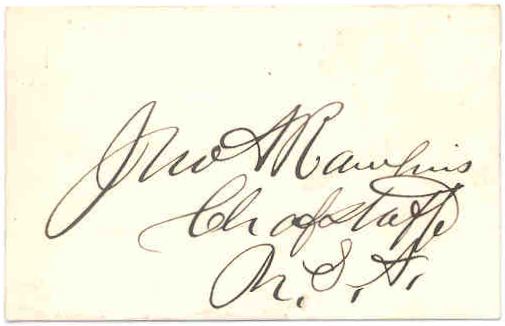 Jno A Rawlins
Ch of Staff
U.S.A.